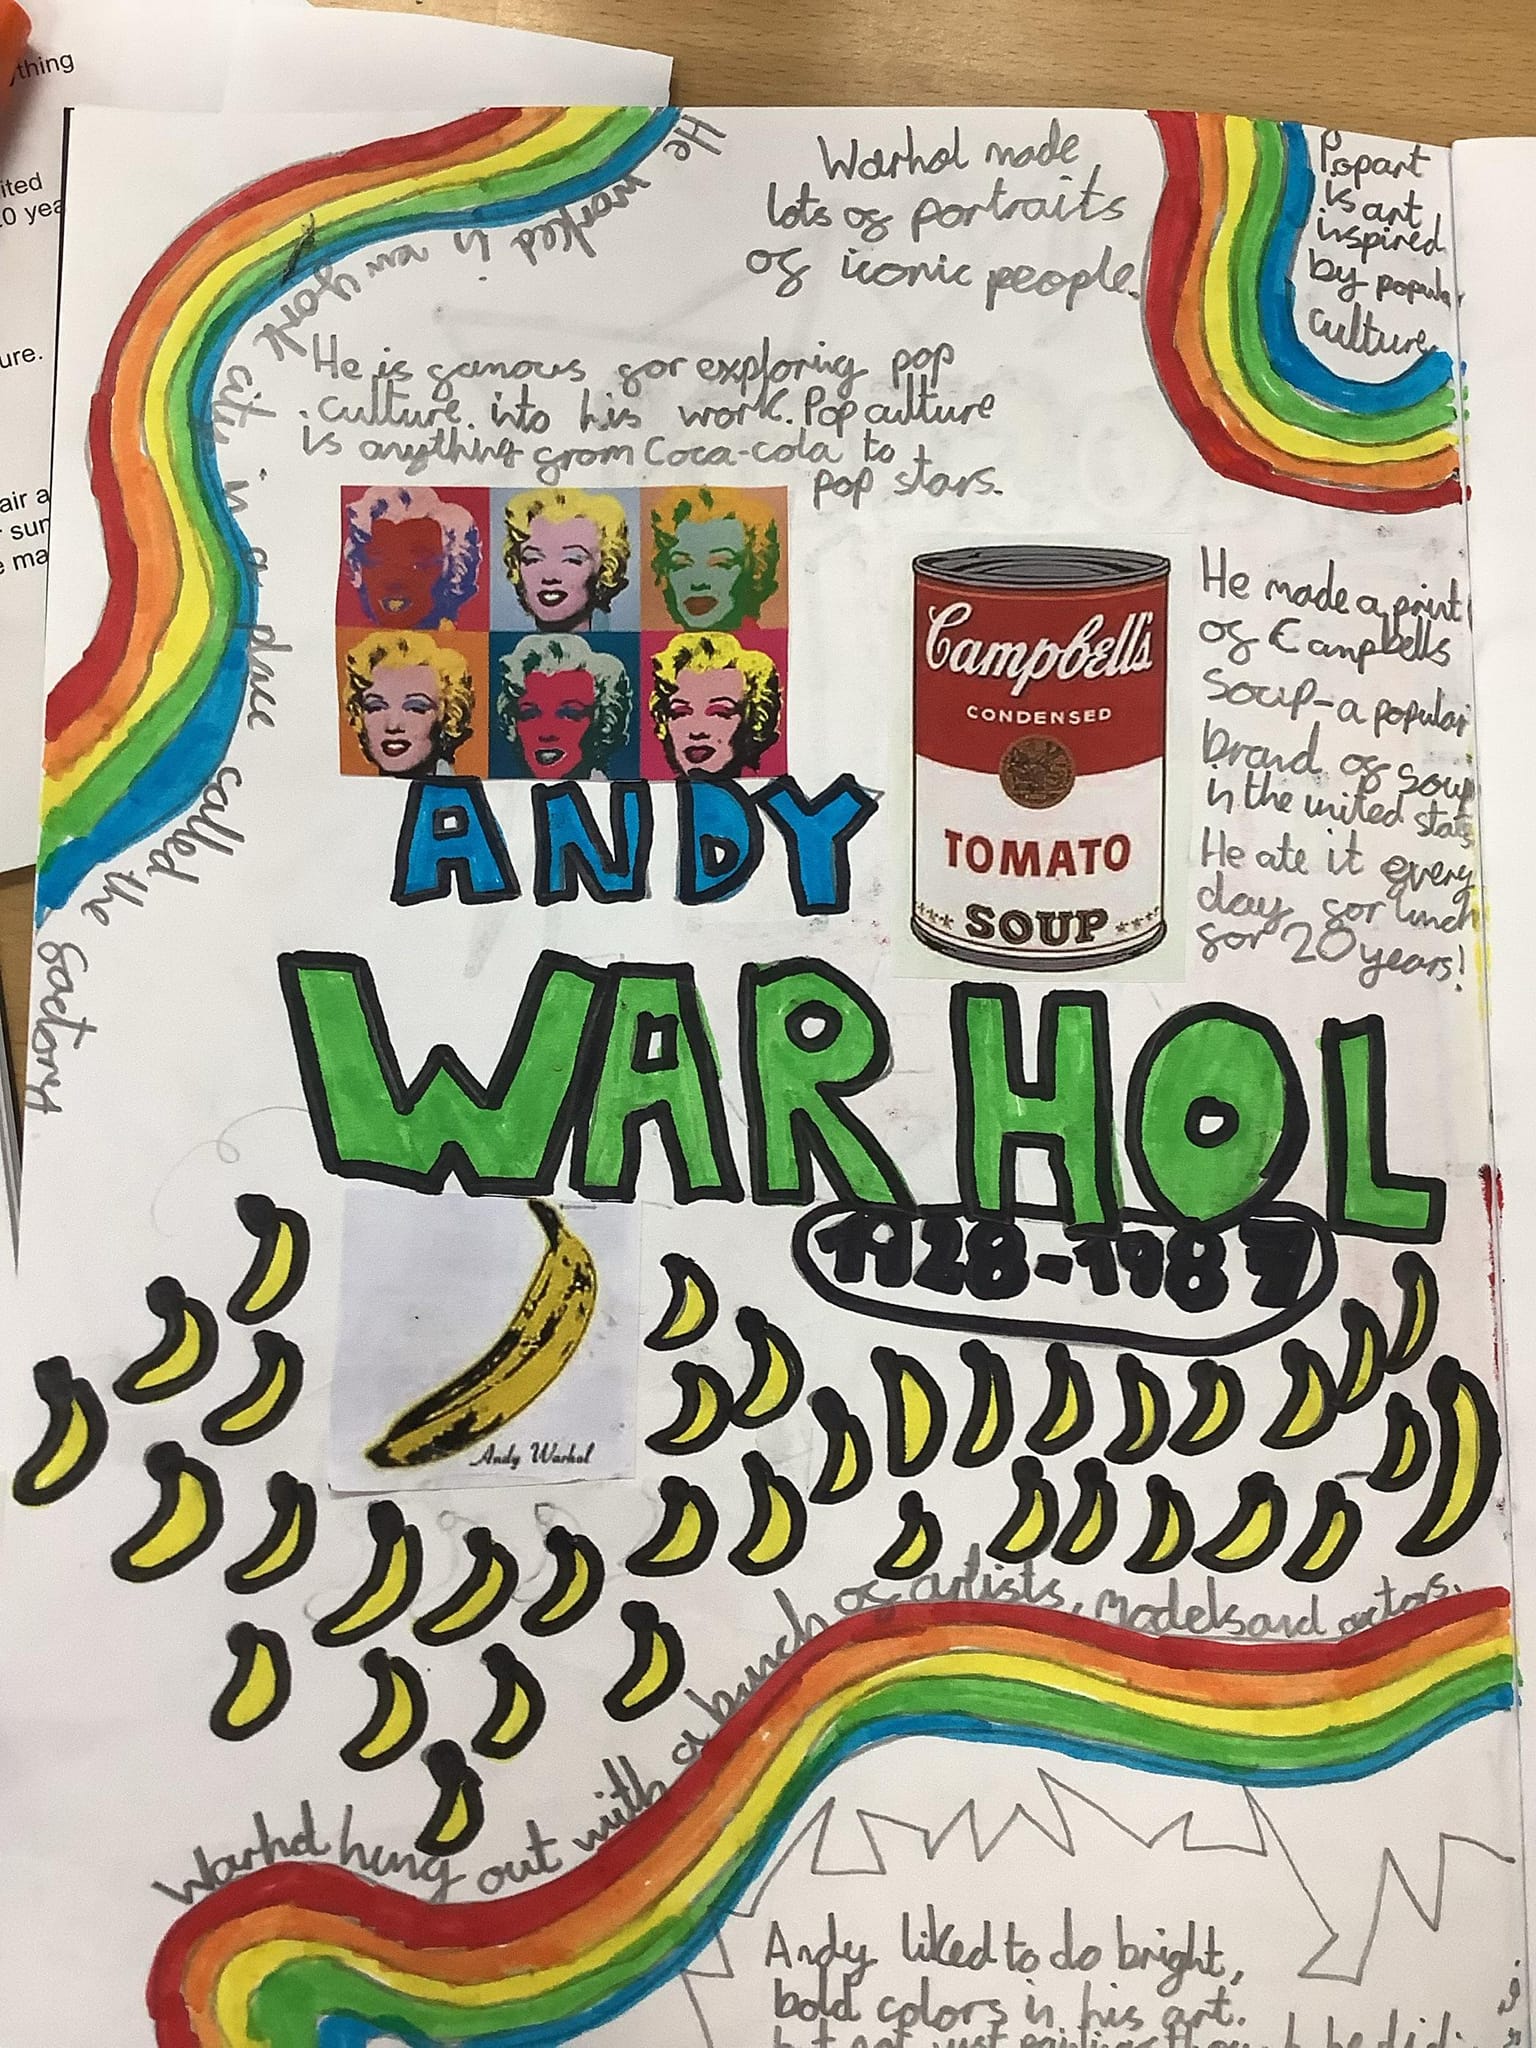 thing
ited
0 yea
ure.
air a
sun
e ma
He worked in new york city in a place called the factory
Warhol made
lots of portraits
of iconic people.
Popart
is art
inspired
by popular
culture
He is famous for exploring pop
culture. into his work. Pop culture
is anything from Coca-cola to
pop stars.
Campbell's
CONDENSED
TOMATO
SOUP
He made a print
of Campbells
soup-a popular
brand of soup
in the united states
He ate it every
day for lunch
for 20 years!
ANDY
WARHOL
1928-1987
Andy Warhol
Warhol hung out with a bunch of artists, models and actors.
Andy liked to do bright,
bold colors in his art.
but not just paintings though he did